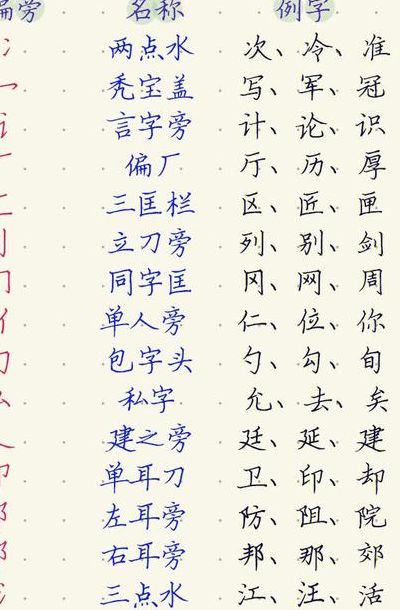 偏旁 名称 例字
冫 两点水 次、冷、准
冖 秃宝盖 写、军、冠
讠 言字旁 计、论、识
厂 偏厂 厅、历、厚
匚 三匡栏 区、匠、匣
刂 立刀旁 列、别、剑
冂 同字匡 冈、网、周
亻 单人旁 仁、位、你
勹 包字头 勺、勾、旬
厶 私字 允、去、矣
廴 建之旁 廷、延、建
卩 单耳刀 卫、印、却
阝 左耳旁 防、阻、院
阝 右耳旁 邦、那、郊
氵 三点水 江、汪、活